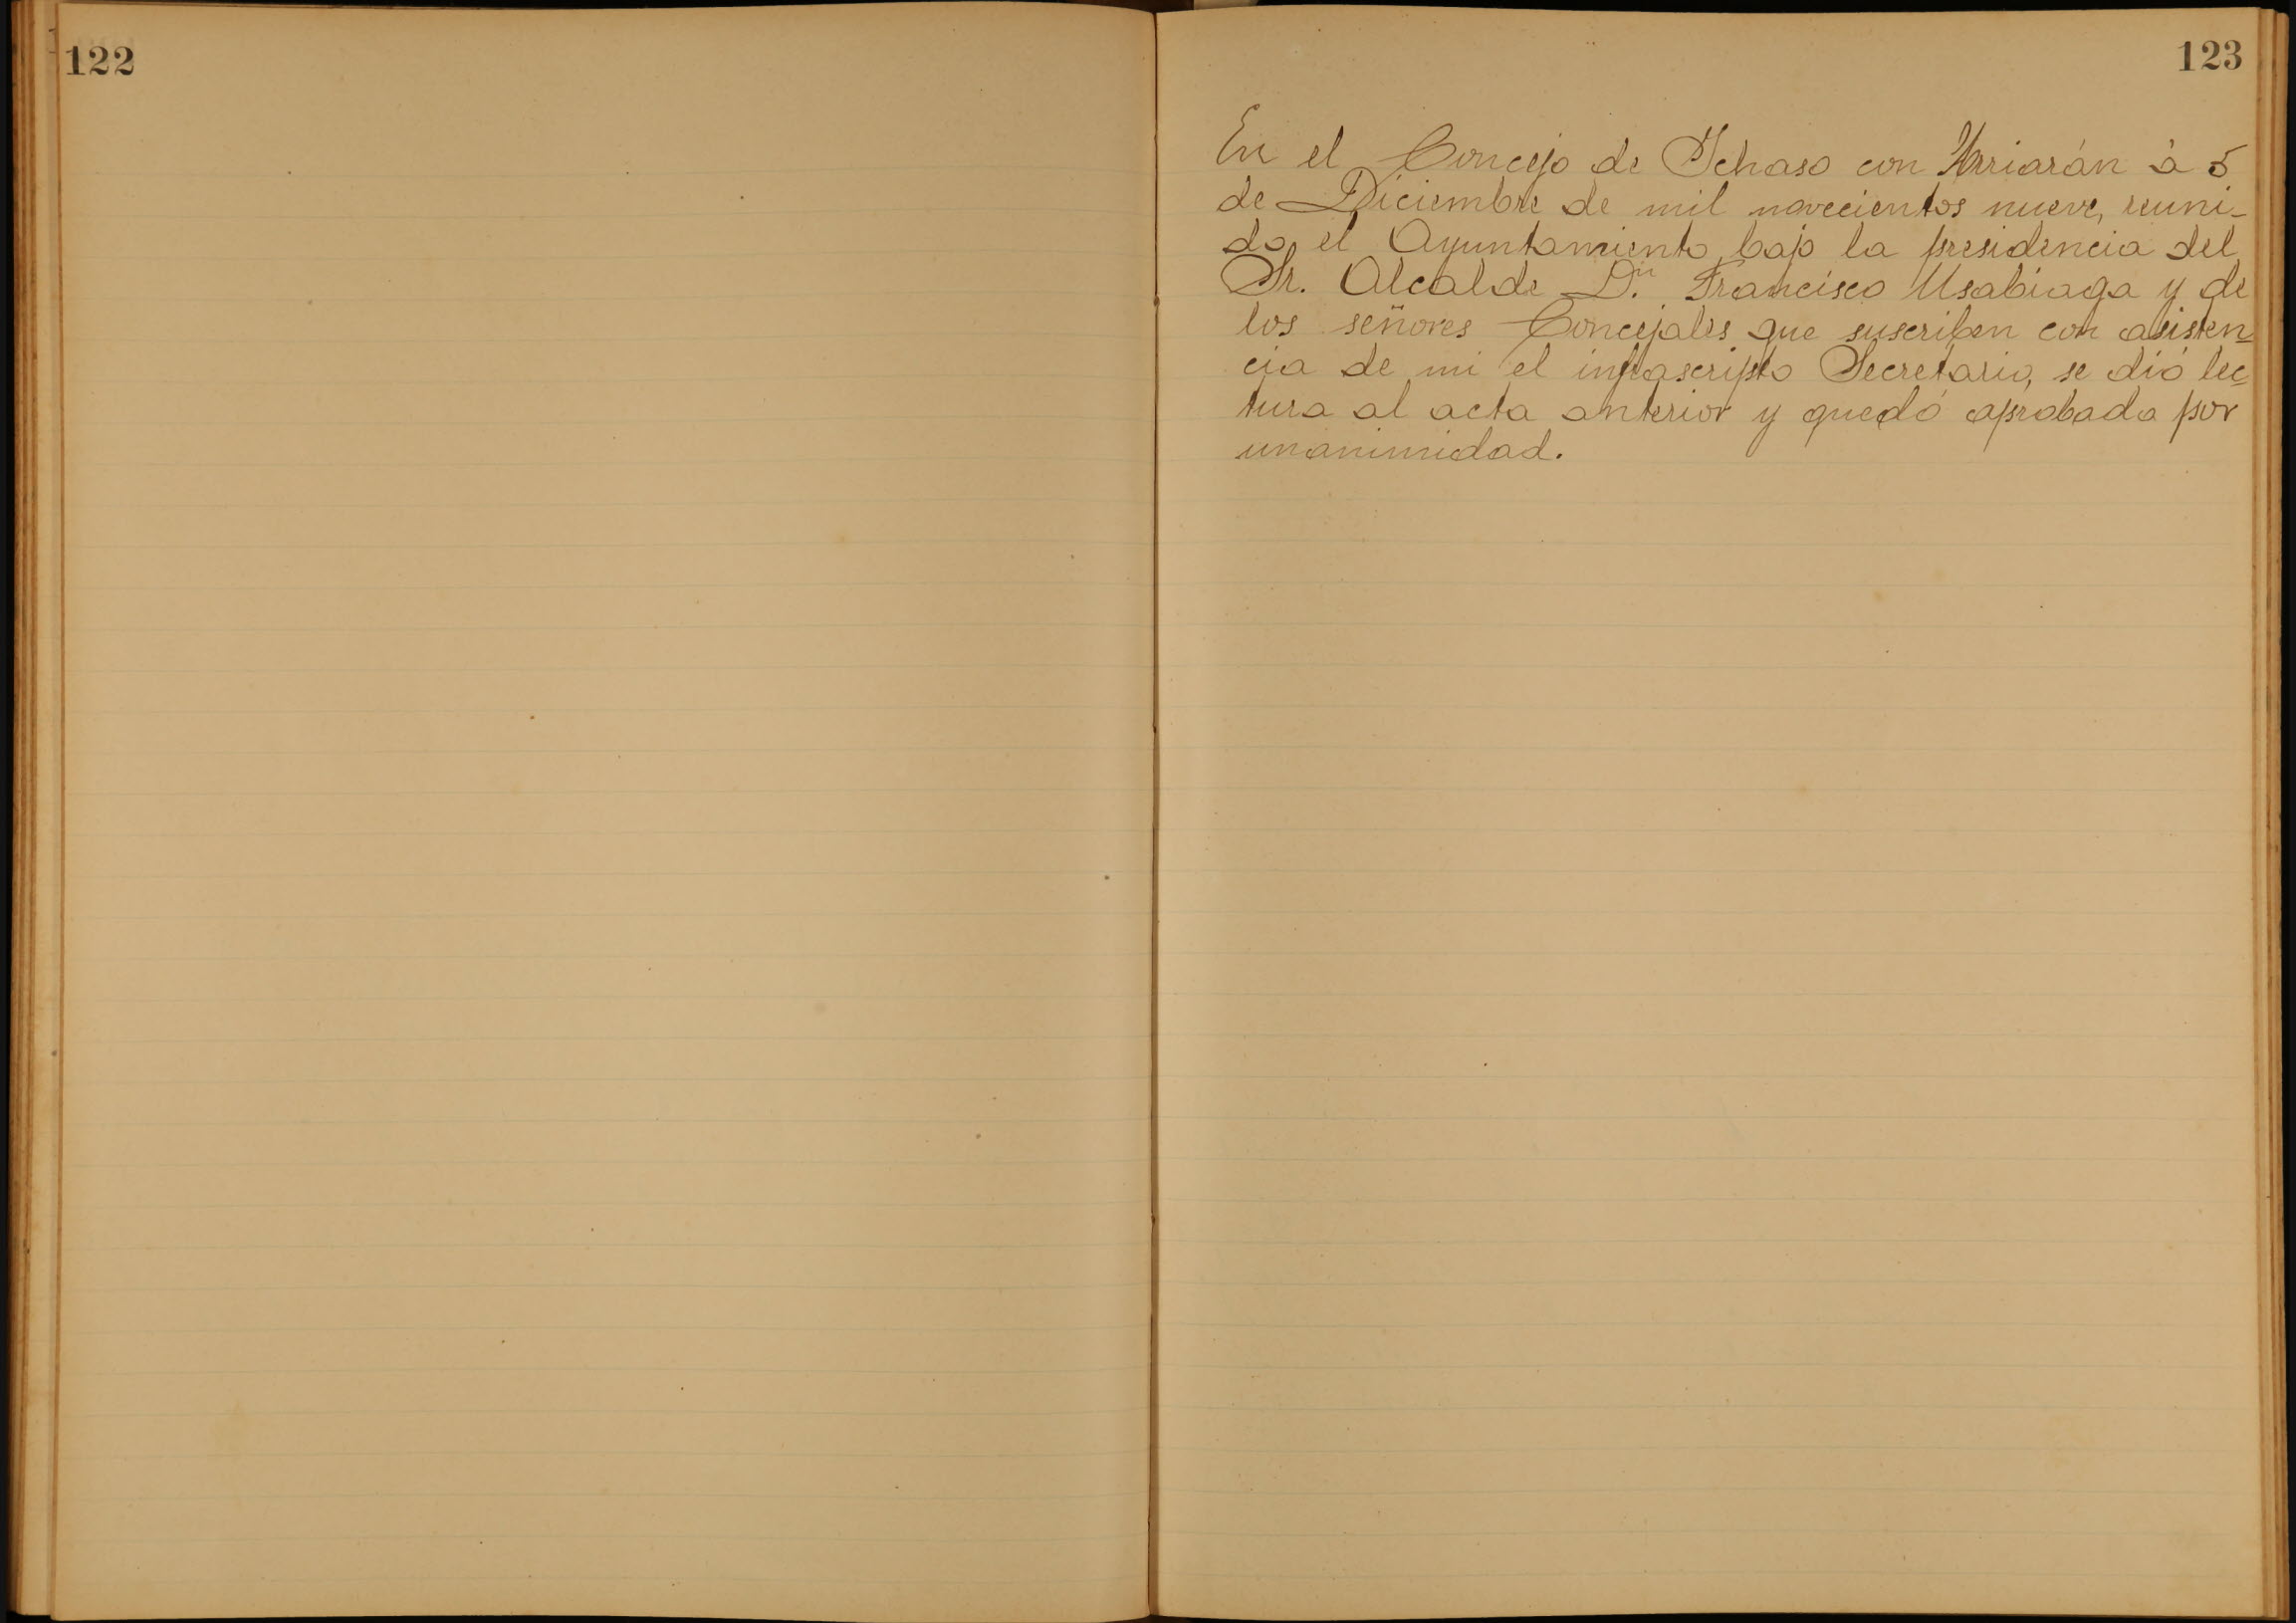 122
123
En el Concejo de Ichaso con Arriarán à 5
de Diciembre de mil novecientos nueve, reuni-
do el Ayuntamiento bajo la presidencia del
Sr. Alcalde D.n Francisco Usabiaga y de
los señores Concejales que suscriben con asisten=
cia de mi el infrascripto Secretario, se dió lec=
tura al acta anterior y quedó aprobada por
unanimidad.